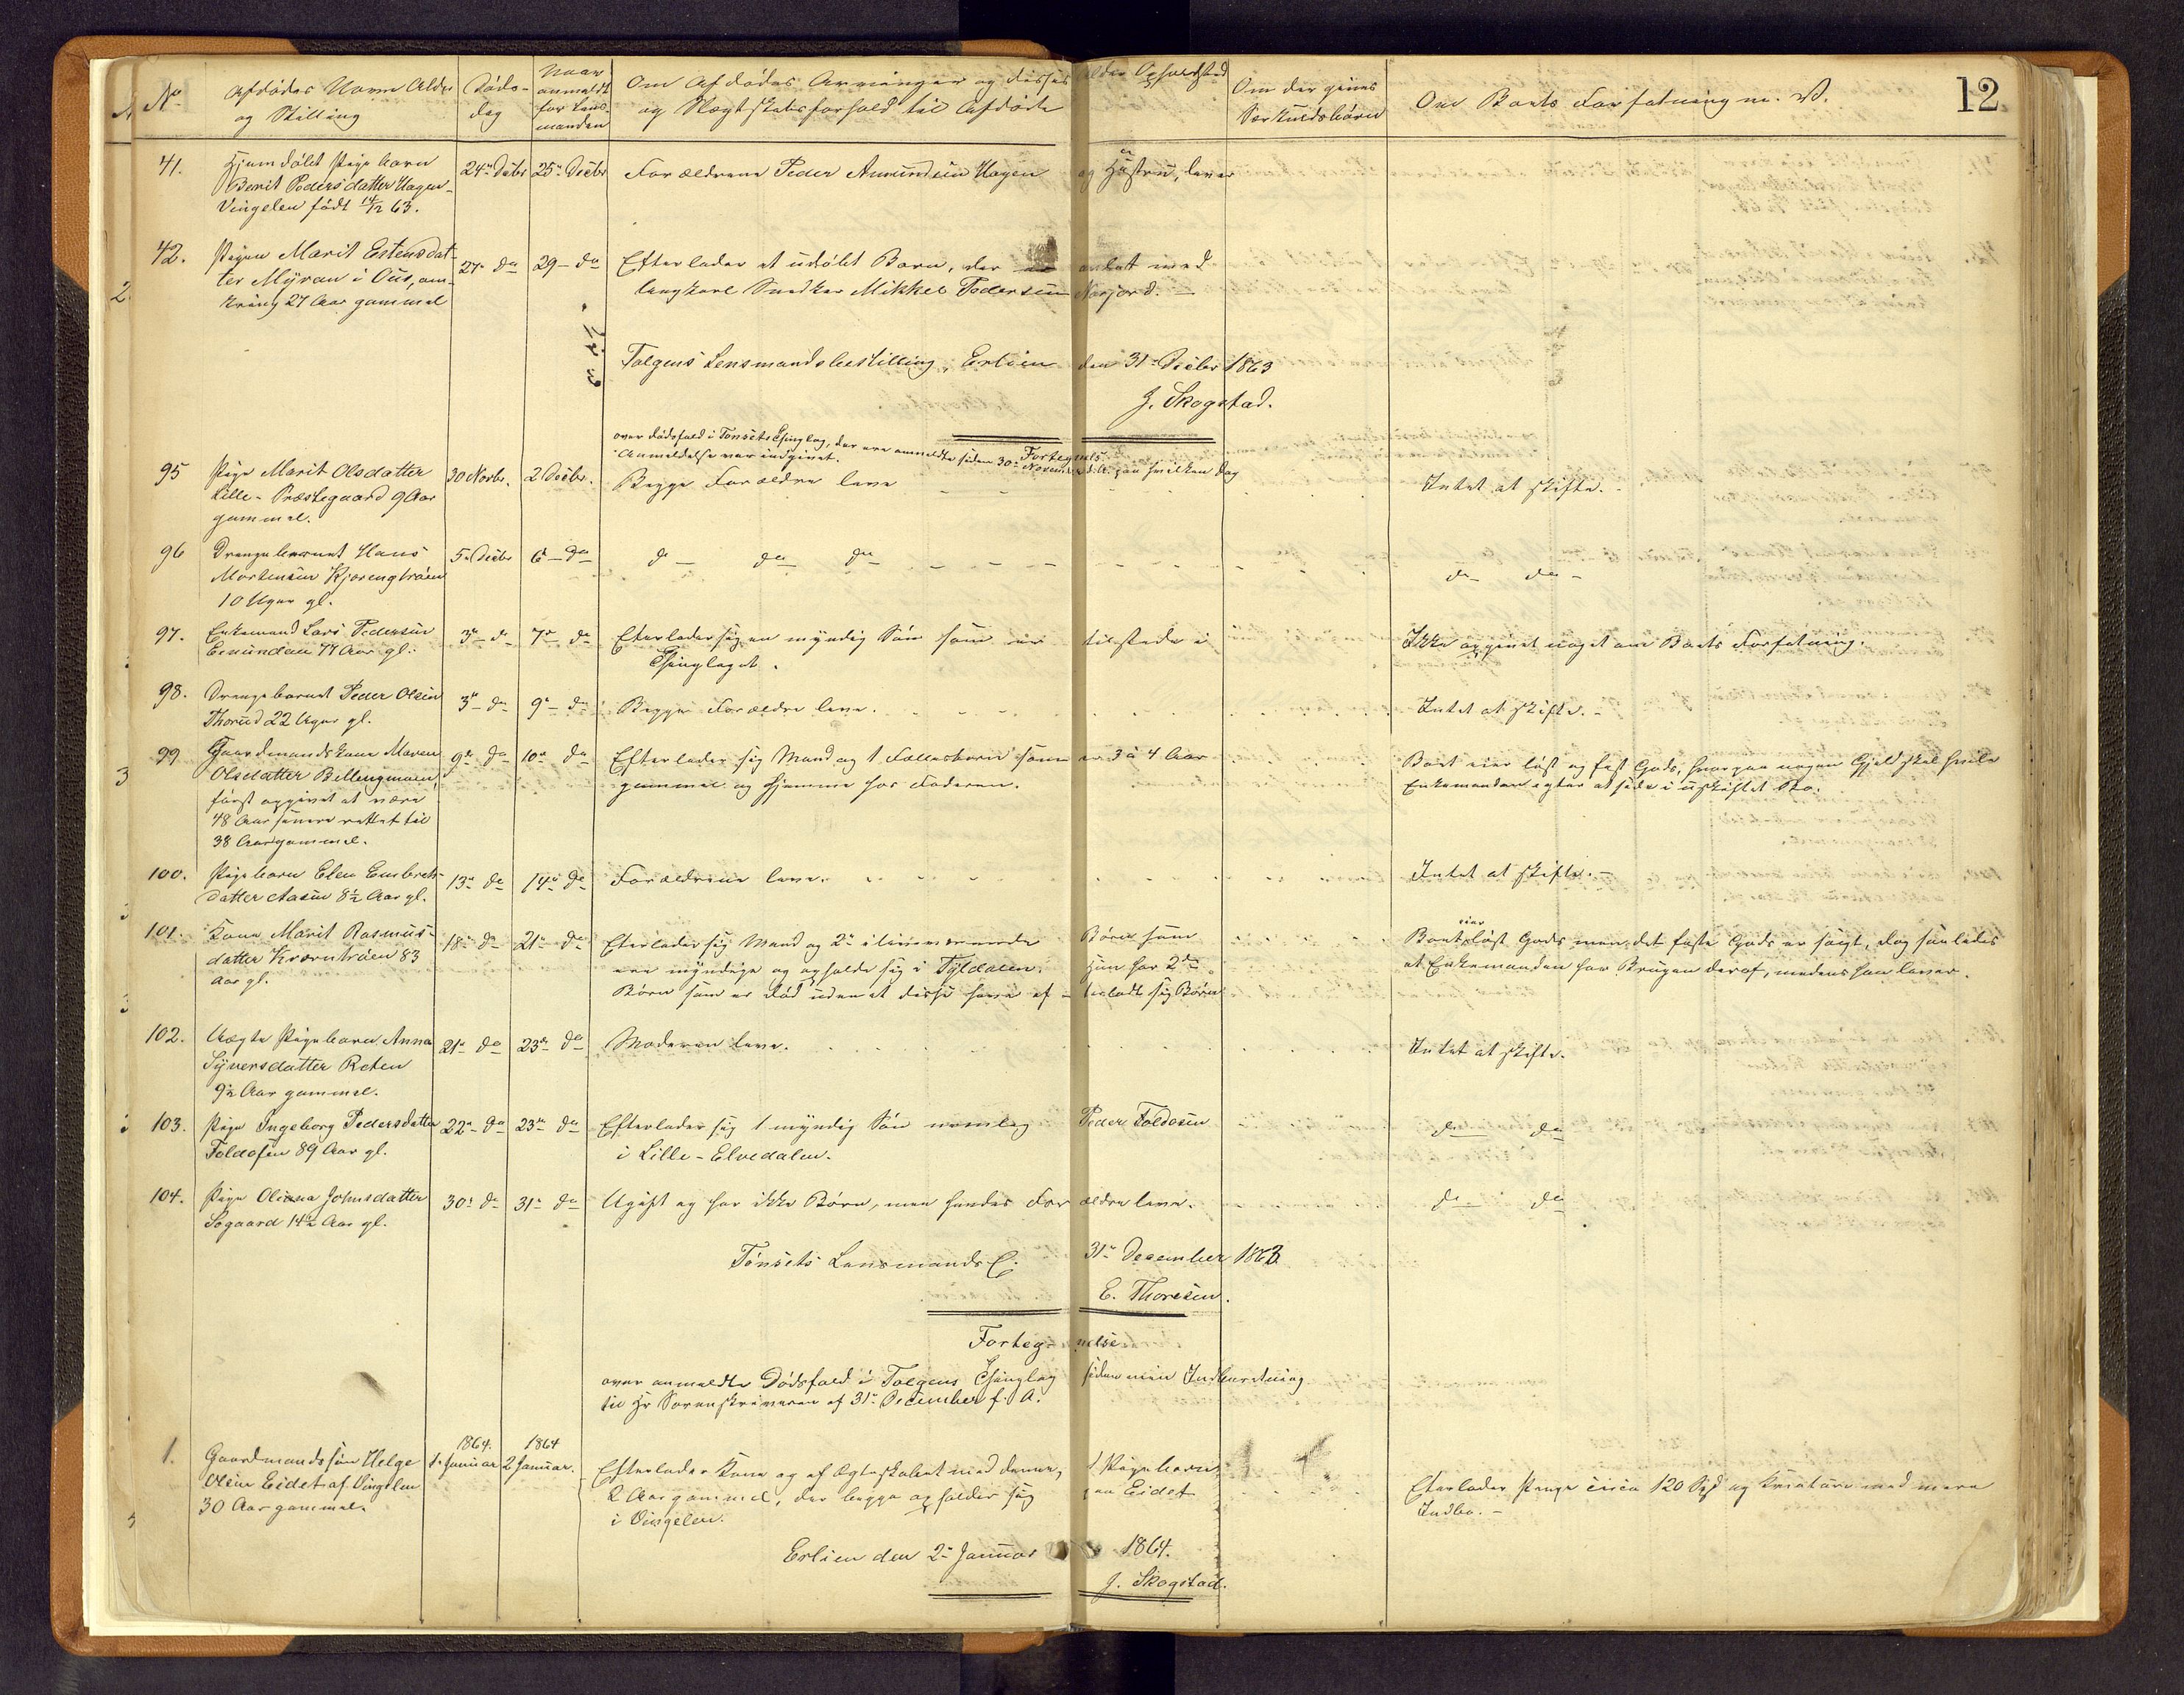 12
No
Afdødes Navn Alder
og Stilling
Døds-
dag
Naar
anmeldt
for Lens-
manden
Om Afdødes Arvinger og disses Alder Opholdsted
og Slægtskabsforhold til Afdøde
Om der gives
Særkuldsbørn
Om Boets Forfatning m. V.
41.
Hjemdøbt Pigebarn
Berit Pedersdatter Hagen
Vingelen født 14/12 63.
24de Decbr
25de Decbr
Forældrene Peder Amundsen Hagen og Hustru, lever
42.
Pigen Marit Estensdat-
ter Myran i Ous, om-
kring 27 Aar gammel
27de do
29 do
Efterlader et udøbt Barn, der er avlet med
Ungkarl Snedker Mikkel Pedersen Norjord. -
Tolgens Lensmandsbestilling, Erlien den 31te Decbr 1863
J. Skogstad.
Fortegnelse
over dødsfald i Tønsets Thinglag, der ere anmeldte siden 30te November d. A. paa hvilken Dag
Anmeldelse var indgivet.
95
Pige Marit Olsdatter
Lille-Præstegaard 9 Aar
gammel.
30 Novbr.
2 Decbr.
Begge Forældre leve
Intet at skifte.
96
Drengebarnet Hans
Mortensen Kjørengtrøen
10 Uger gl.
5te Decbr
6te do
do do do
do do
97.
Enkemand Lars Pedersen
Erlundau 77 Aar gl.
3de do
7de do
Efterlader sig en myndig Søn som er tilstede i
Thinglaget.
Ikke opgivet noget om Boets Forfatning.
98.
Drengebarnet Peder Olsen
Thorud 22 Uger gl.
3de do
9de do
Begge Forældre leve.
Intet at skifte. -
99
Gaardmandskone Maren
Olsdatter Bellingmoen,
først opgivet at være
48 Aar senere rettet til
38 Aar gammel.
9de do
10de do
Efterlader sig Mand og 1 Fællesbarn som er 3 à 4 Aar
gammel og hjemme hos Faderen.
Boet eier løst og fast Gods, hvorpaa nogen Gjeld skal hvile
Enkemanden agter at side i uskiftet Bo.
100.
Pigebarn Elen Embrets-
datter Aasen 8½ Aar gl.
13de do
14de do
Forældrene leve.
Intet at skifte. -
101.
Kone Marit Rasmus-
datter Kværntrøen 83
Aar gl.
18de do
21de do
Efterlader sig Mand og 2de ilivværende Børn som
ere myndige og opholde sig i Tyldalen. Hun har 2de
Børn som er død uden at disse have ef- terladt sig Børn
Boet eier løst Gods men det faste Gods er solgt, dog saaledes
at Enkemanden har Brugen deraf, medens han lever.
102.
Uægte Pigebarn Anna
Syversdatter Roten
9½ Aar gammel.
21de do
23de do
Moderen lever.
Intet at skifte.
103.
Pige Ingeborg Pedersdatter
Foldosen 89 Aar gl.
22de do
23de do
Efterlader sig 1 myndig Søn nemlig Peder Foldosen
i Lille-Elvedalen.
do do
104.
Pige Oliana Johnsdatter
Søgaard 14½ Aar gl.
30te do
31te do
Ugift og har ikke Børn, men hendes Forældre leve.
do do
Tønsets Lensmands C. 31te December 1863
E. Thoresen.
Fortegnelse
over anmeldte Dødsfald i Tolgens Thinglag siden min Indberetning
til Hr Sorenskriveren af 31te December f. A.
1.
Gaardmandssøn Helge
Olsen Eidet af Vingelen
30 Aar gammel.
1864.
1te Januar
1864
2 Januar.
Efterlader Kone og af Ægteskabet med denne, 1 Pigebarn,
2 Aar gammel, der begge opholder sig paa Eidet
i Vingelen.
Efterlader Penge circa 120 Spd og Kreature med mere
Indbo. -
Erlien den 2de Januar 1864.
J. Skogstad.